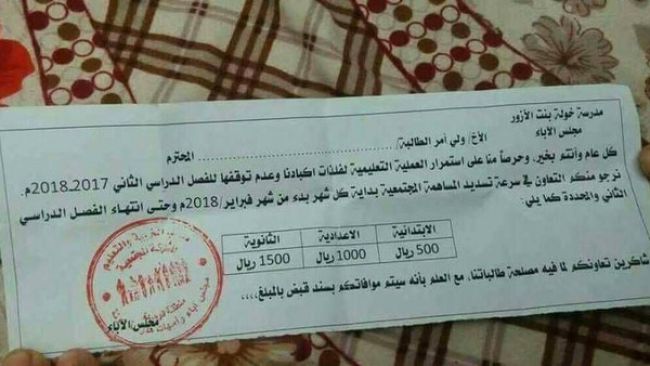 مدرسة خولة بنت الأزور
مجلس الآباء
الأخ/ ولي أمر الطالبة/ ........................................ المحترم
كل عام وأنتم بخير، وحرصاً منا على استمرار العملية التعليمية لفلذات اكبادنا وعدم توقفها للفصل الدراسي الثاني 2017ـ2018م.
نرجو منكم التعاون في سرعة تسديد المساهمة المجتمعية بداية كل شهر بدء من شهر فبراير/2018م وحتى انتهاء الفصل الدراسي
الثاني والمحددة كما يلي:
الابتدائية الاعدادية الثانوية
500 ريال 1000 ريال 1500 ريال
شاكرين تعاونكم لما فيه مصلحة طالباتنا، مع العلم بأنه سيتم موافاتكم بسند قبض بالمبلغ،،،،
مجلس الآباء
التربية والتعليم
مجلس آباء وأمهات